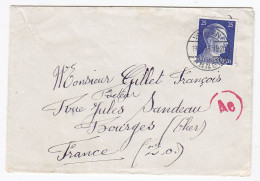 25 25
Monsieur Gillet François
Facteur
Rue Jules Sandeau
Bourges (Cher)
France (Z.o.)
Ae